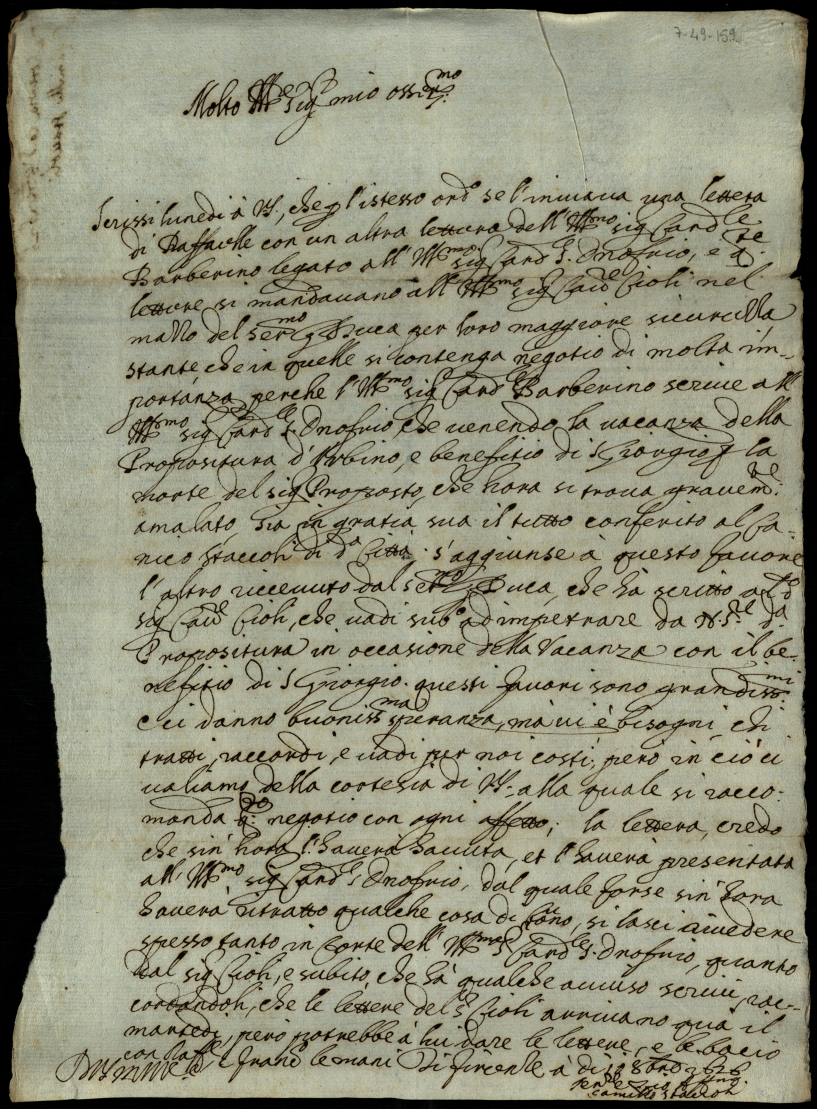 7-49-159
Molto Ill.re sig.r mio osser.mo
Scrissi lunedi à VS, che p l'istesso ord.o se l'inviava una lettera
di Raffaelle con un altra lettera dell'Ill.mo sig Card.le
Barberino legato all'Ill.mo sig Card.l S. Onofrio, e q.te
lettere si mandavano all'Ill.mo sig Cav.re Cioli nel
mazzo del Ser.mo G Duca per loro maggiore sicurezza
stante, che in quelle si contenga negotio di molta im-
portanza, perche l'Ill.mo sig Card.l Barberino scrive all'
Ill.mo sig Card.le S Onofrio, che venendo la vacanza della
Propositura d'Urbino, e benefitio di S Giorgio p la
morte del sig Proposto, che hora si trova gravem.te
amalato, sia in gratia sua il tutto conferito al Ca-
nico Staccoli di d.a Città. s'aggiunse à questo favore
l'altro ricevuto dal Ser.mo G Duca, che hà scritto al d.o
sig Cav.re Cioli, che vadi sub.o ad impetrare da N.S.re d.a
Propositura in occasione della Vacanza con il be-
nefitio di S Giorgio. questi favori sono grandiss.mi
e ci danno buoniss.ma speranza, mà vi è bisogni, chi
tratti, raccordi, e vadi per noi costì; però in ciò ci
valiamo della cortesia di VS. alla quale si racco-
manda q.to negotio con ogni affetto; la lettera, credo
che sin'hora l'haverà havuta, et l'haverà presentata
all'Ill.mo sig Card.l S Onofrio, dal quale forse sin'hora
haverà ritratto qualche cosa di bono, si lasci rivedere
spesso tanto in Corte dell'Ill.mo S Card.le S. Onofrio, quanto
dal sig Cioli, e subito, che hà qualche avviso scrivi, rac-
cordandoli, che le lettere del S.r Cioli arrivano quà il
martedi, però potrebbe à lui dare le lettere, e le bacio
con Raff.le e Franc.o le mani Di Firenze à di 8bre 1626
Di VS molto Ill.re
Camillo Staccoli